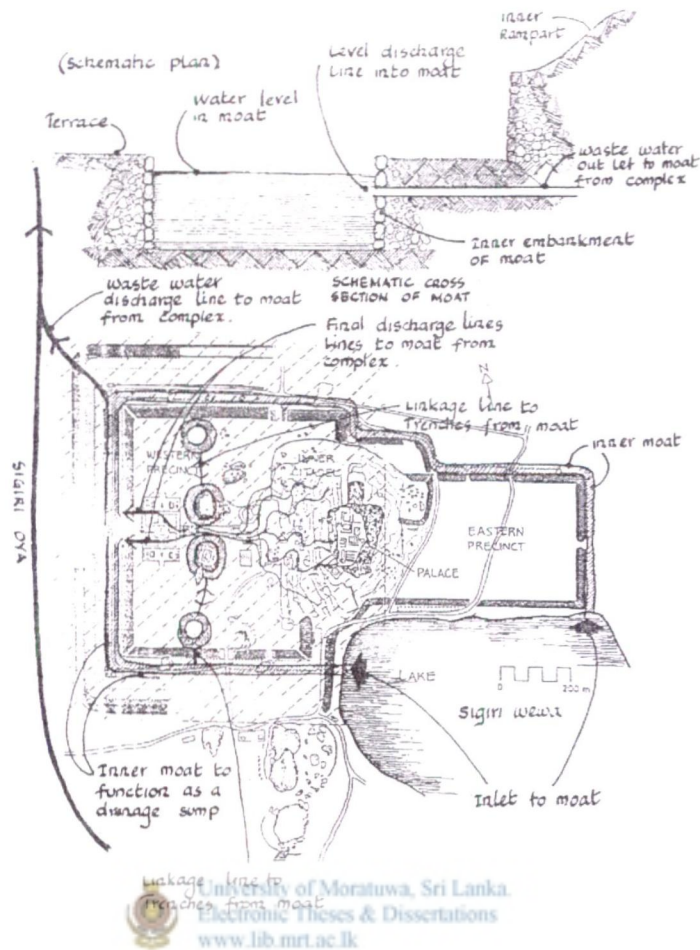 (Schematic plan)
Terrace
Water level
in moat
Level discharge
Line into moat
inner
Rampart
waste water
out let to moat
from complex
Inner embankment
of moat
SCHEMATIC CROSS
SECTION OF MOAT
waste water
discharge line to moat
from complex.
Final discharge lines
lines to moat from
complex.
N
Linkage line to
Trenches from moat
inner moat
WESTERN
PRECINCT
CITADEL
EASTERN
PRECINCT
PALACE
SIGIRI OYA
LAKE
0 200 m
Sigiri wewa
Inner moat to
function as a
drinage sump
Inlet to moat
Linkage line to
Trenches from moat
University of Moratuwa, Sri Lanka.
Electronic Theses & Dissertations
www.lib.mrt.ac.lk